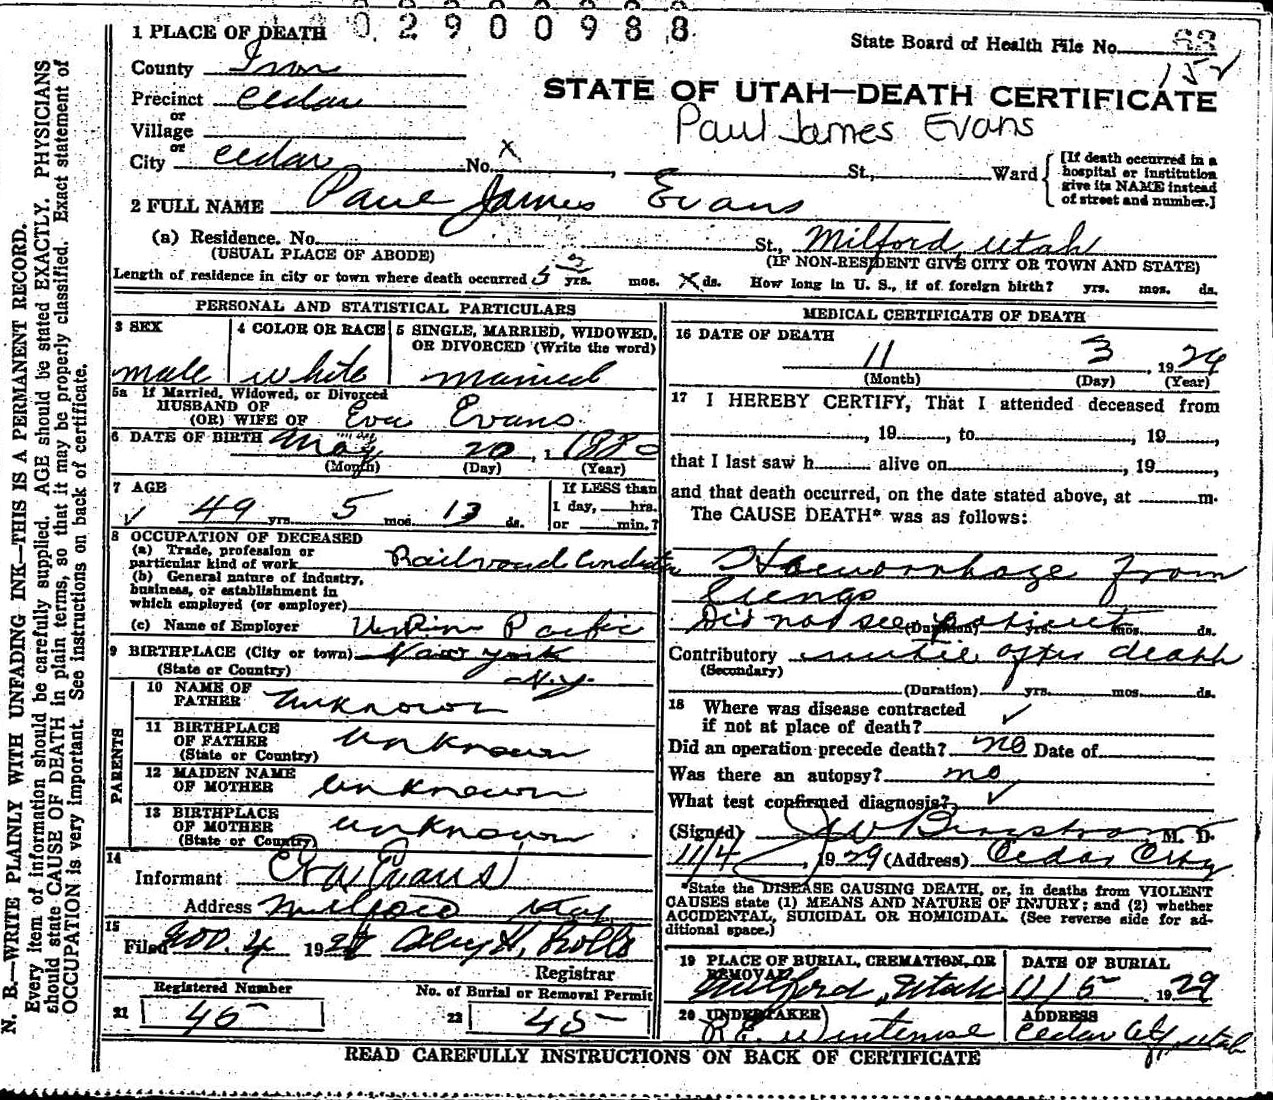 0 2 9 0 0 9 8 8
1 PLACE OF DEATH
State Board of Health File No.
County Iron
Precinct Cedar
or
Village
or
City Cedar No. X St., Ward
[If death occurred in a
hospital or institution
give its NAME instead
of street and number.]
STATE OF UTAH—DEATH CERTIFICATE
Paul James Evans
2 FULL NAME Paul James Evans
(a) Residence. No. St., Milford, Utah
(USUAL PLACE OF ABODE) (IF NON-RESIDENT GIVE CITY OR TOWN AND STATE)
Length of residence in city or town where death occurred 5 yrs. mos. X ds. How long in U. S., if of foreign birth? yrs. mos. ds.
PERSONAL AND STATISTICAL PARTICULARS
3 SEX
male
4 COLOR OR RACE
white
5 SINGLE, MARRIED, WIDOWED,
OR DIVORCED (Write the word)
married
5a If Married, Widowed, or Divorced
HUSBAND OF
(OR) WIFE OF Eva Evans
6 DATE OF BIRTH May 20, 1880
(Month) (Day) (Year)
7 AGE
49 yrs. 5 mos. 13 ds.
If LESS than
1 day, hrs.
or min.?
8 OCCUPATION OF DECEASED
(a) Trade, profession or
particular kind of work Railroad Conductor
(b) General nature of industry,
business, or establishment in
which employed (or employer)
(c) Name of Employer Union Pacific
9 BIRTHPLACE (City or town) New York
(State or Country) N.Y.
PARENTS
10 NAME OF
FATHER unknown
11 BIRTHPLACE
OF FATHER unknown
(State or Country)
12 MAIDEN NAME
OF MOTHER unknown
13 BIRTHPLACE
OF MOTHER unknown
(State or Country)
14
Informant Eva Evans
Address Milford Utah
15
Filed Nov. 4 1929
Registrar
Registered Number
21 45
No. of Burial or Removal Permit
22 45
MEDICAL CERTIFICATE OF DEATH
16 DATE OF DEATH
11 3, 1929
(Month) (Day) (Year)
17 I HEREBY CERTIFY, That I attended deceased from
, 19 , to , 19 ,
that I last saw h alive on , 19 ,
and that death occurred, on the date stated above, at m.
The CAUSE DEATH* was as follows:
Haemorrhage from
Lungs
Did not see patient
(Duration) yrs. mos. ds.
Contributory until after death
(Secondary)
(Duration) yrs. mos. ds.
18 Where was disease contracted
if not at place of death?
Did an operation precede death? no Date of
Was there an autopsy? no
What test confirmed diagnosis?
(Signed) M. D.
11/4, 1929 (Address) Cedar City
*State the DISEASE CAUSING DEATH, or, in deaths from VIOLENT
CAUSES state (1) MEANS AND NATURE OF INJURY; and (2) whether
ACCIDENTAL, SUICIDAL OR HOMICIDAL. (See reverse side for ad-
ditional space.)
19 PLACE OF BURIAL, CREMATION, OR
REMOVAL
Milford, Utah
DATE OF BURIAL
11/5 1929
20 UNDERTAKER
ADDRESS
Cedar City, Utah
READ CAREFULLY INSTRUCTIONS ON BACK OF CERTIFICATE
N. B.—WRITE PLAINLY WITH UNFADING INK—THIS IS A PERMANENT RECORD.
Every item of information should be carefully supplied. AGE should be stated EXACTLY. PHYSICIANS
should state CAUSE OF DEATH in plain terms, so that it may be properly classified. Exact statement of
OCCUPATION is very important. See instructions on back of certificate.